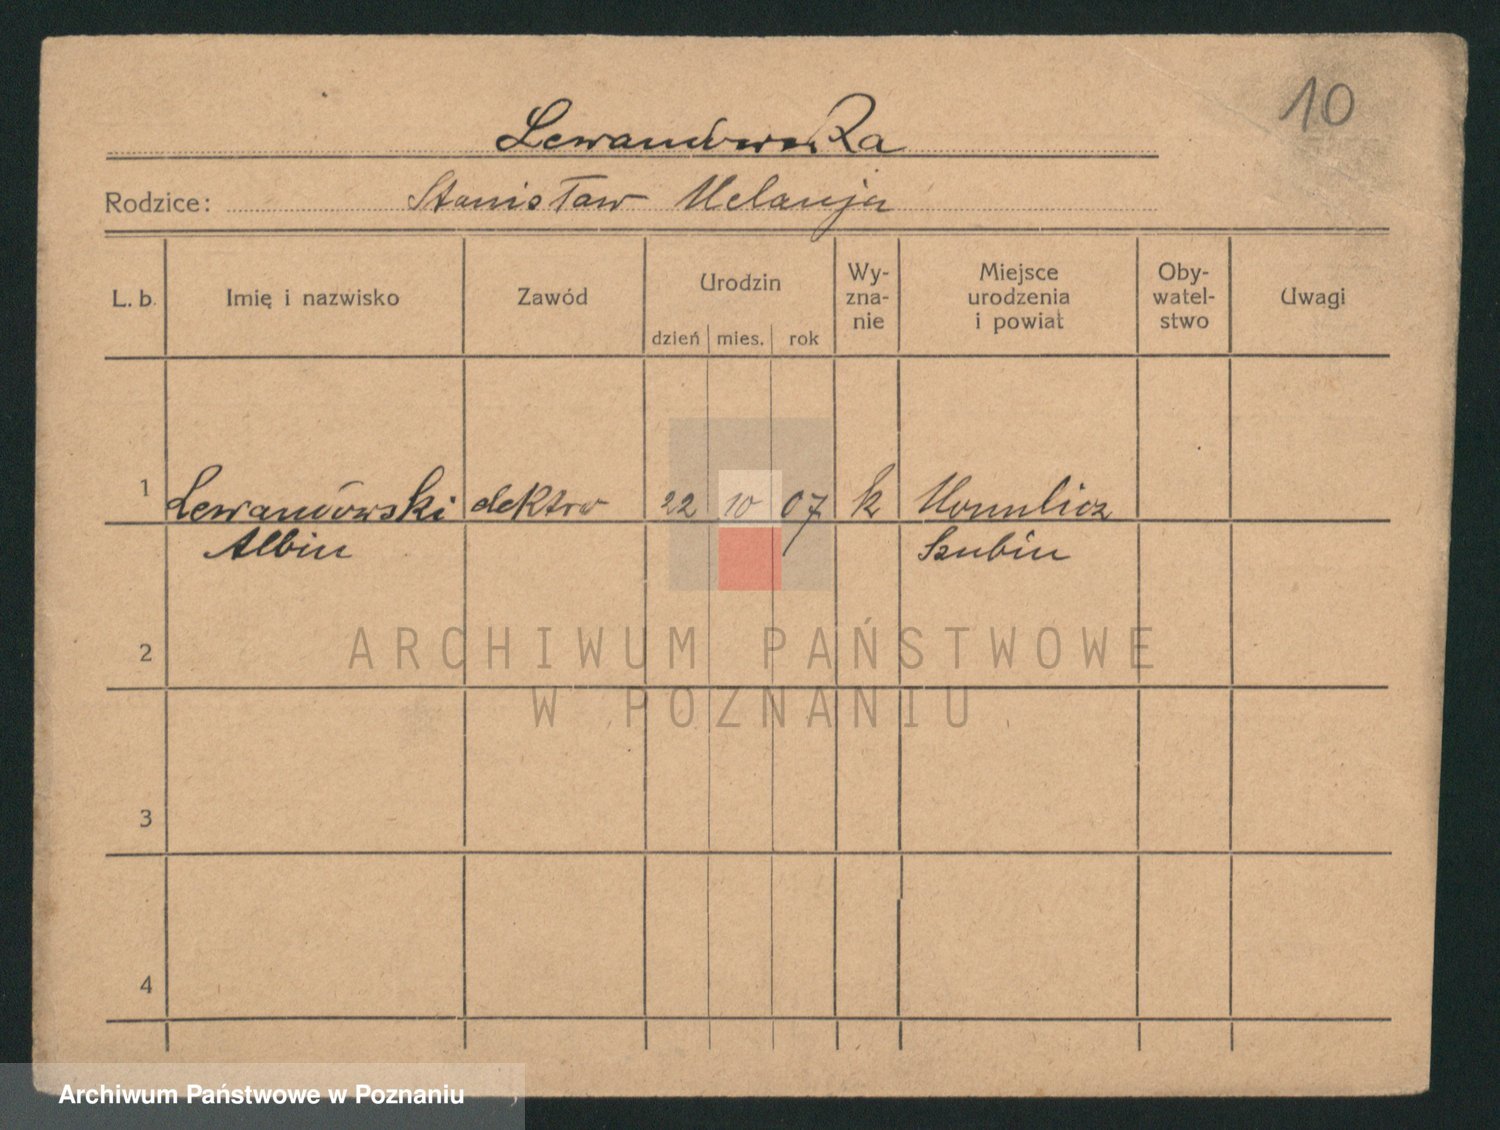 10
Lewandowska
Rodzice: Stanisław Melanja
L. b. Imię i nazwisko Zawód Urodzin dzień mies. rok Wy- zna- nie Miejsce urodzenia i powiat Oby- watel- stwo Uwagi
1 Lewandowski elektro 22 10 07 k
Albin Szubin
2
ARCHIWUM PAŃSTWOWE
W POZNANIU
3
4
Archiwum Państwowe w Poznaniu